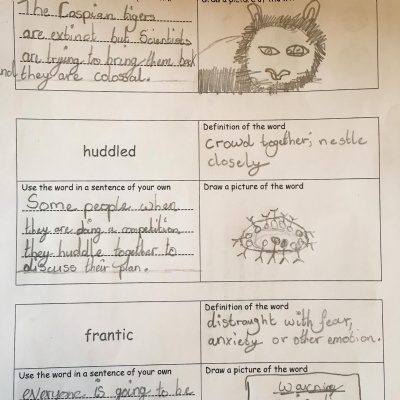 The Caspian tigers
are extinct but Scientists
are trying to bring them back
and they are colossal.
huddled
Definition of the word
Crowd together; nestle
closely
Use the word in a sentence of your own
Some people when
they are doing a competition,
they huddle together to
discuss their plan.
Draw a picture of the word
frantic
Definition of the word
distraught with fear,
anxiety or other emotion.
Use the word in a sentence of your own
everyone is going to be
Draw a picture of the word
Warning